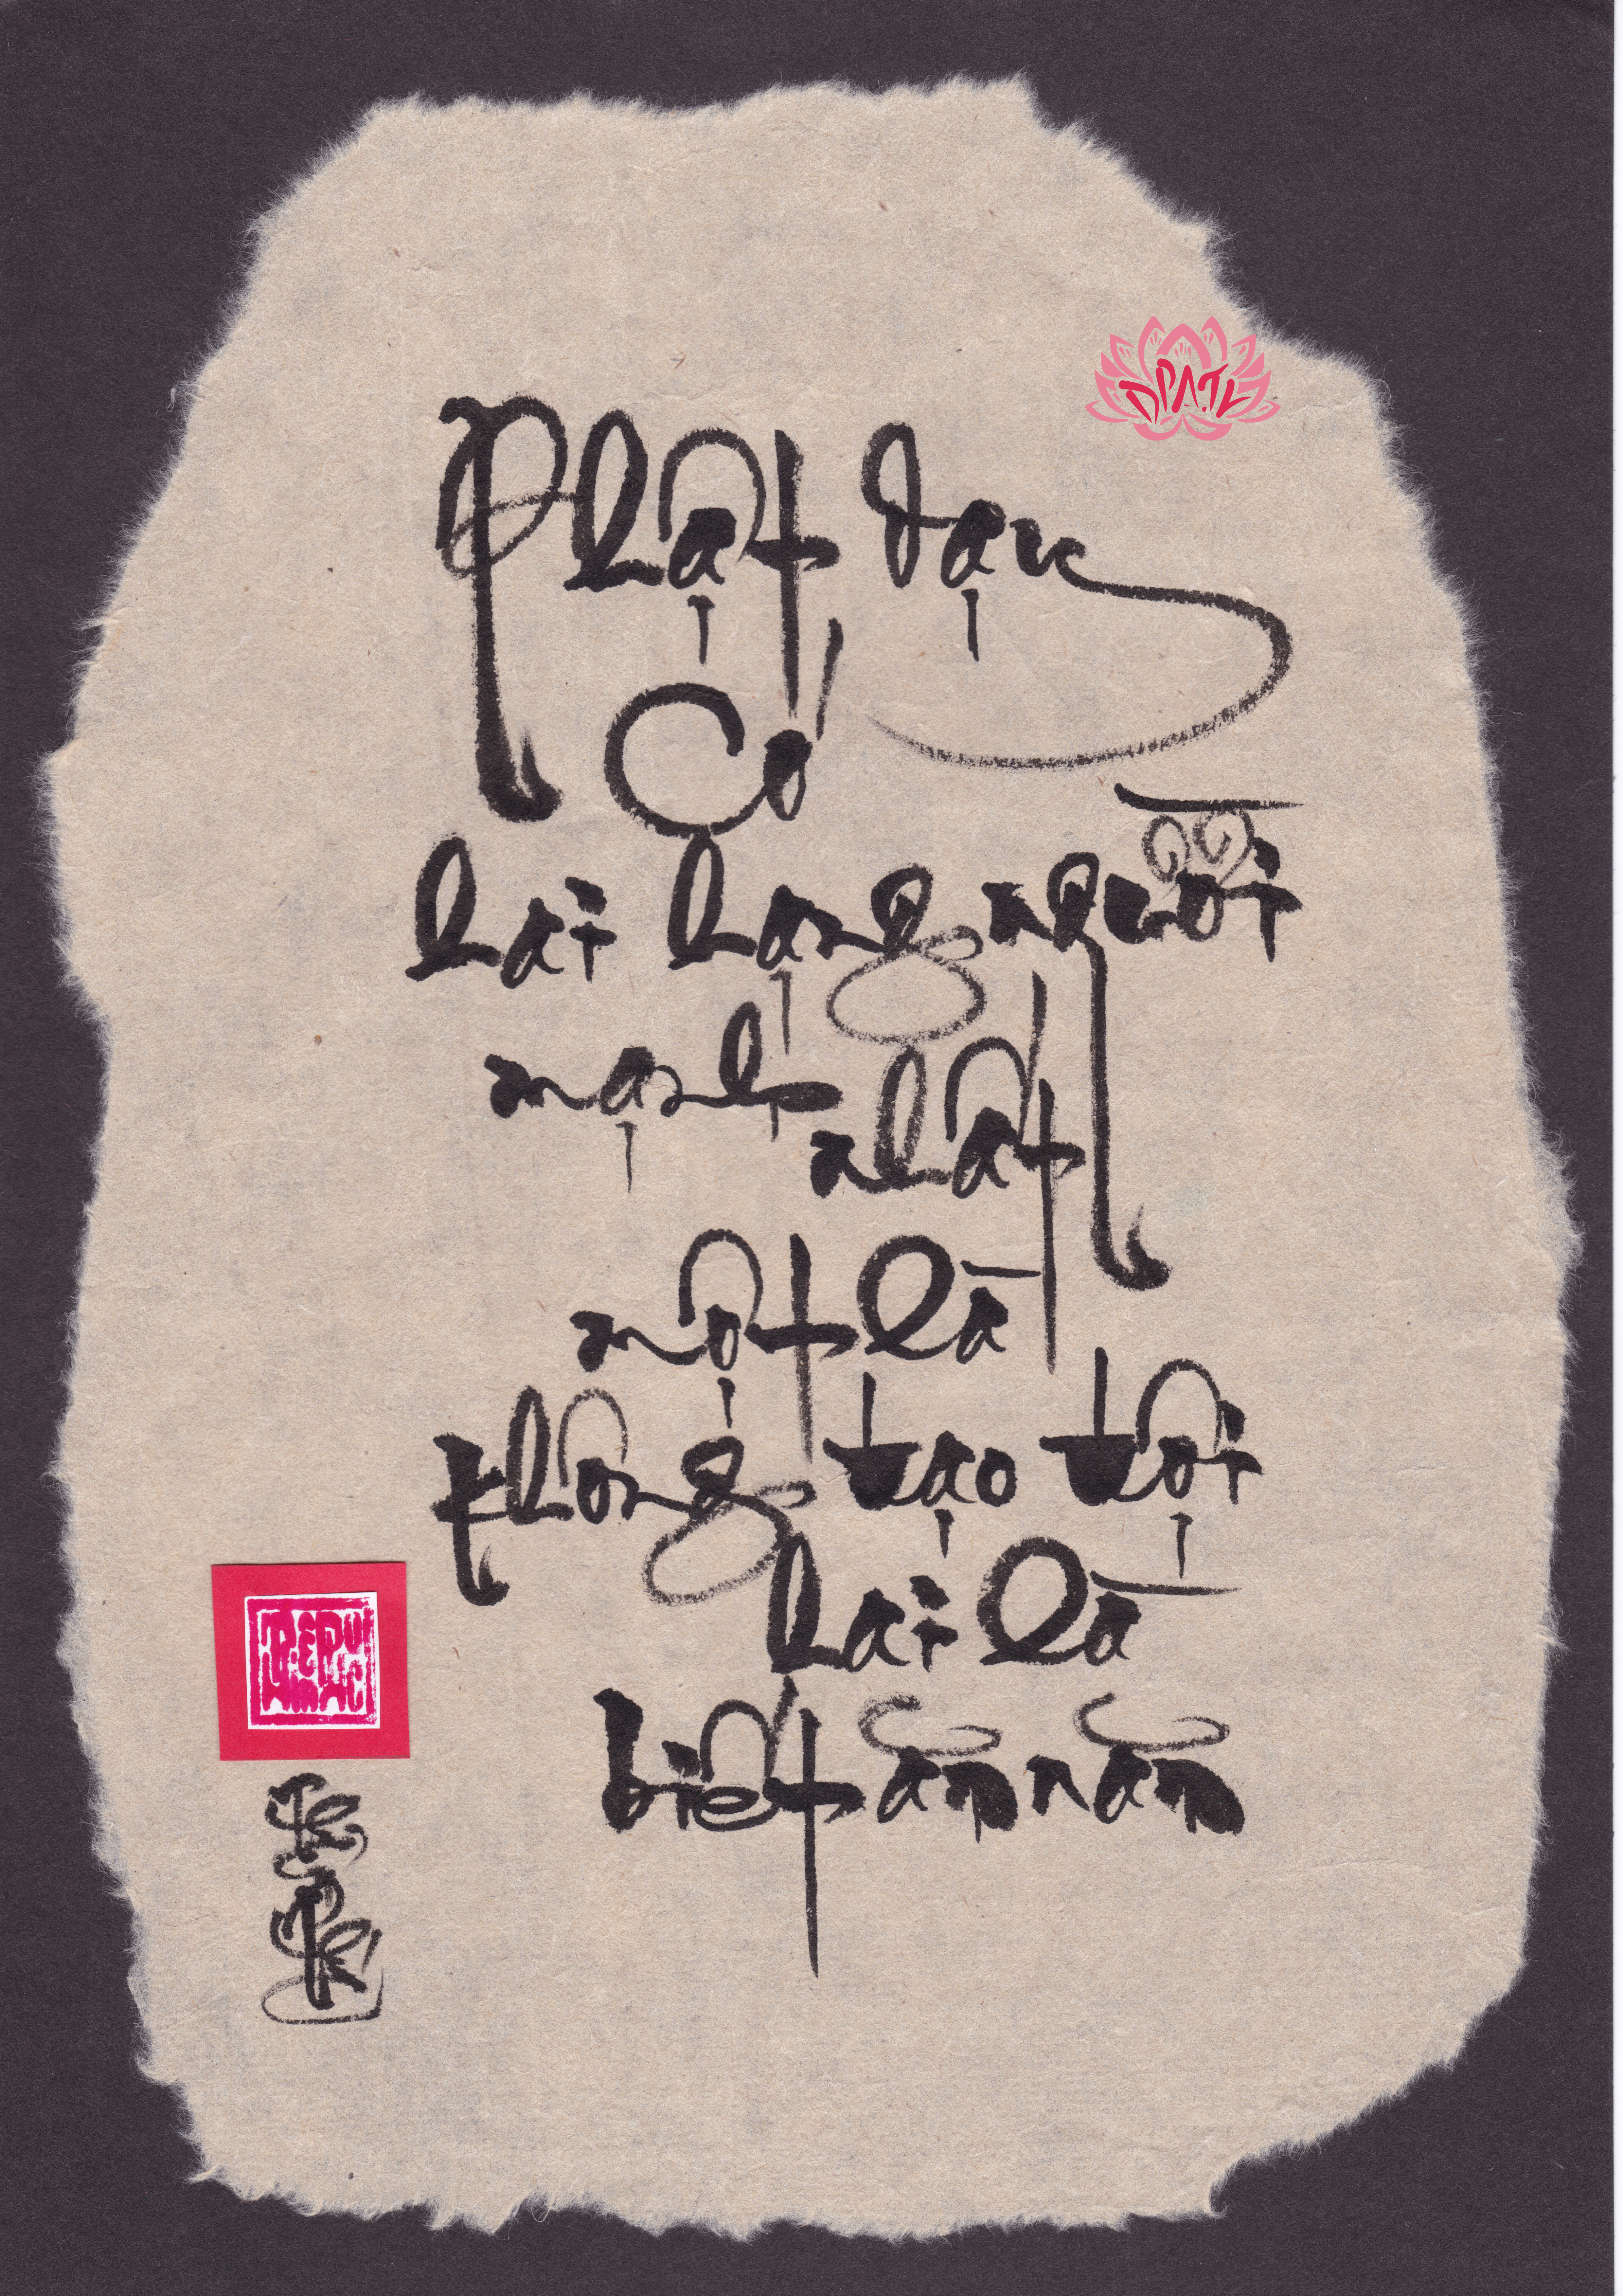 Phật dạy
Có
hai hạng người
mạnh nhất
một là
không tạo tội
hai là
biết ăn năn
DPATL